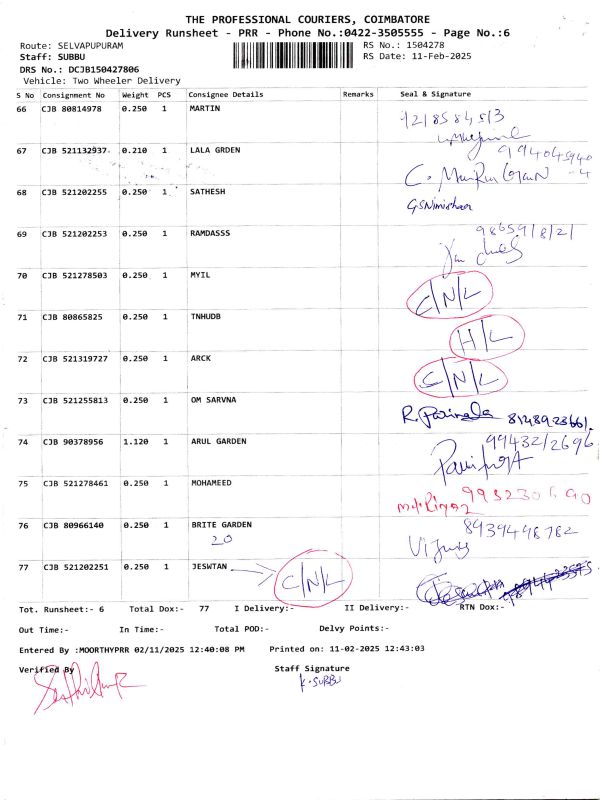 THE PROFESSIONAL COURIERS, COIMBATORE
Delivery Runsheet - PRR - Phone No.:0422-3505555 - Page No.:6
Route: SELVAPUPURAM RS No.: 1504278
Staff: SUBBU RS Date: 11-Feb-2025
DRS No.: DCJB150427806
Vehicle: Two Wheeler Delivery
S No Consignment No Weight PCS Consignee Details Remarks Seal & Signature
66 CJB 80814978 0.250 1 MARTIN
9218584513
67 CJB 521132937 0.210 1 LALA GRDEN
68 CJB 521202255 0.250 1 SATHESH
69 CJB 521202253 0.250 1 RAMDASSS 98659/8/2/
70 CJB 521278503 0.250 1 MYIL
C/N/L
71 CJB 80865825 1 0.250 TNHUDB
H/L
72 CJB 521319727 0.250 1 ARCK
C/N/L
73 CJB 521255813 0.250 1 OM SARVNA
8148923661.
74 CJB 90378956 1.120 1 ARUL GARDEN 99432/2696
75 CJB 521278461 0.250 1 MOHAMEED
76 CJB 80966140 0.250 1 BRITE GARDEN 8939448782
20
77 CJB 521202251 0.250 1 JESWTAN
C/N/L
Tot. Runsheet:- 6 Total Dox:- 77 I Delivery:- II Delivery:- RTN Dox:-
Out Time:- In Time:- Total POD:- Delvy Points:-
Entered By :MOORTHYPRR 02/11/2025 12:40:08 PM Printed on: 11-02-2025 12:43:03
Verified By Staff Signature
K. SUBBU